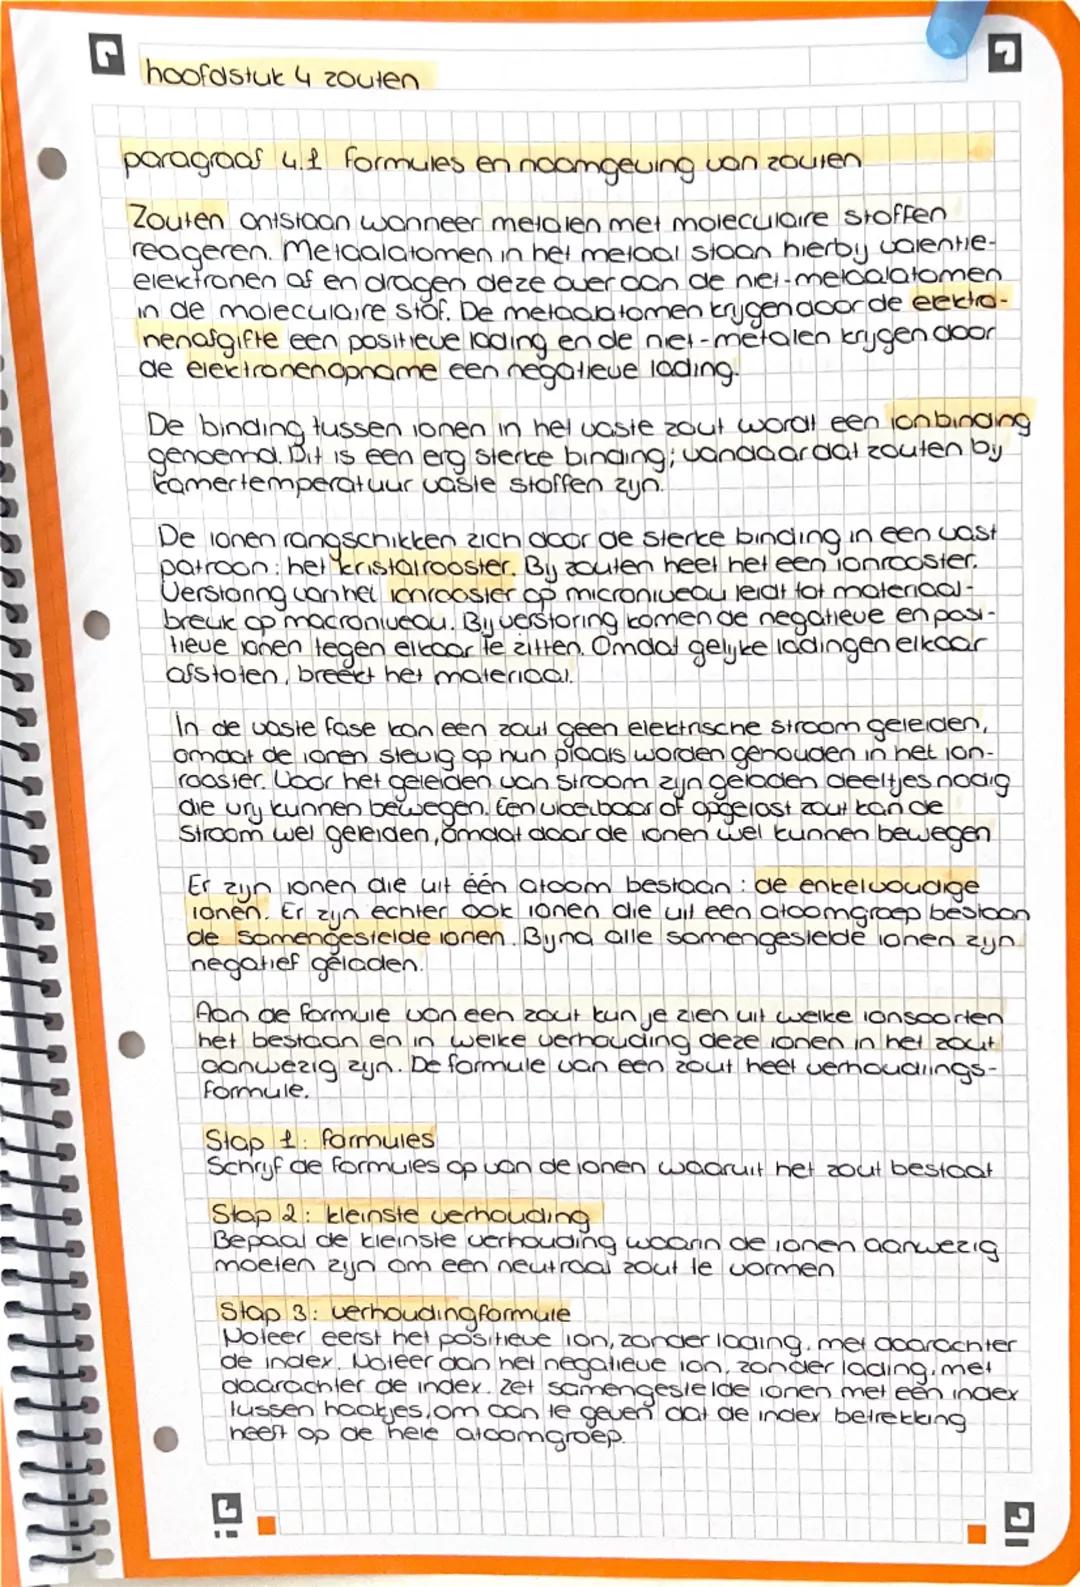 hoofdstuk 4 zouten
paragraaf 4.1 formules en naamgeving van zouten
Zouten ontstaan wanneer metalen met moleculaire stoffen
reageren. Metaalatomen in het metaal staan hierby valentie-
elektronen af en dragen deze over aan de niet-metaalatomen
in de moleculaire stof. De metaalatomen krygen door de elektro-
nenafgifte een positieve lading en de niet-metalen krijgen door
de elektronenopname een negatieve lading.
De binding tussen ionen in het vaste zout wordt een ionbinding
genoemd. Dit is een erg sterke binding; vandaar dat zouten by
kamertemperatuur vaste stoffen zyn.
De ionen rangschikken zich door de sterke binding in een vast
patroon: het kristalrooster. By zouten heet het een ionrooster.
Verstoring van het ionrooster op microniveau leidt tot materiaal-
breuk op macroniveau. By verstoring komen de negatieve en posi-
tieve ionen tegen elkaar te zitten. Omdat gelyke ladingen elkaar
afstoten, breekt het materiaal.
In de vaste fase kan een zout geen elektrische stroom geleiden,
omdat de ionen stevig op hun plaats worden gehouden in het ion-
rooster. Voor het geleiden van stroom zyn geladen deeltjes nodig
die vry kunnen bewegen. Een vloeibaar of opgelost zout kan de
stroom wel geleiden, omdat daar de ionen wel kunnen bewegen
Er zyn ionen die uit één atoom bestaan: de enkelvoudige
ionen. Er zyn echter ook ionen die uit een atoomgroep bestaan
de samengestelde ionen. Byna alle samengestelde ionen zyn
negatief geladen.
Aan de formule van een zout kun je zien uit welke ionsoorten
het bestaan en in welke verhouding deze ionen in het zout
aanwezig zyn. De formule van een zout heet verhoudings-
formule.
Stap 1: formules
Schryf de formules op van de ionen waaruit het zout bestaat
Stap 2: kleinste verhouding
Bepaal de kleinste verhouding waarin de ionen aanwezig
moeten zyn om een neutraal zout te vormen
Stap 3: verhoudingformule
Noteer eerst het positieve ion, zonder lading, met daarachter
de index. Noteer dan het negatieve ion, zonder lading, met
daarachter de index. Zet samengestelde ionen met een index
tussen haakjes, om aan te geven dat de index betrekking
heeft op de hele atoomgroep.